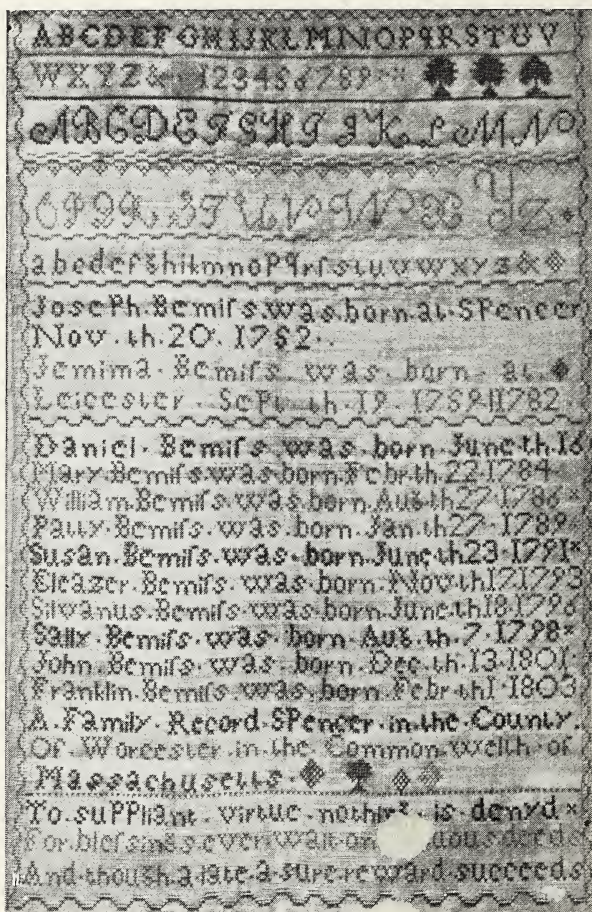 ABCDEFGHIJKLMNOPqRSTUV
WXYZ& 123456789
ABCDEFGHIJKLMNO
PQRSTUVWXYZ
abcdefghikmnopqrſstuvwxyz&
Joseph·Bemiſs·was·born·at·SPencer
Nov·th·20·1752·
Jemima·Bemiſs was·born·at·
Leicester·SePt·th·19·1759·1782
Daniel·Bemiſs·was·born·June·th·16
Mary·Bemiſs·was·born·Febr·th·22·1784
William·Bemiſs·was·born·Aug·th·27·1786
Patty·Bemiſs·was·born·Jan·th·27·1789
Susan·Bemiſs·was·born·June·th·23·1791
Eleazer·Bemiſs·was·born·Nov·th·17·1793
Silvanus·Bemiſs·was·born·June·th·18·1796
Sally·Bemiſs·was·born·Aug·th·7·1798
John·Bemiſs·was·born·Dec·th·13·1801
Franklin·Bemiſs·was·born·Febr·th·1·1803
A·Family·Record·SPencer·in·the·County·
Of·Worcester·in·the·Common·welth·of
Massachusetts·
To·suPPliant·virtue·nothing·is·denyd
For·bleſsings·ever·wait·on· deeds
And·though·a·late·a·sure·reward·succeeds